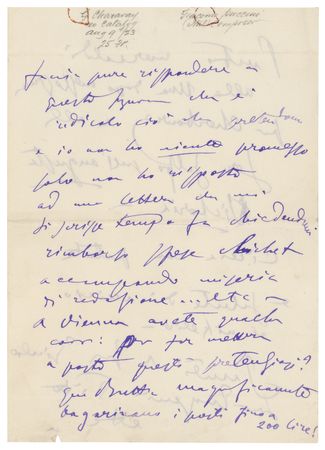 G. Charavay
Catalog
Aug 9 '53
25 Fr.
Giacomo Puccini
pure rispondere a
questo signore che è
ridicolo ciò che pretendono
e io non ho niente promesso
solo non ho risposto
ad una lettera che mi
si scrisse tempo fa chiedendomi
rimborso spese
accampando miseria
di redazione... Etc -
a Vienna avete qualche
corr: per mettere
a posto questi pretenziosi?
qui magnificamente
bagarinano i posti fino a
200 lire!